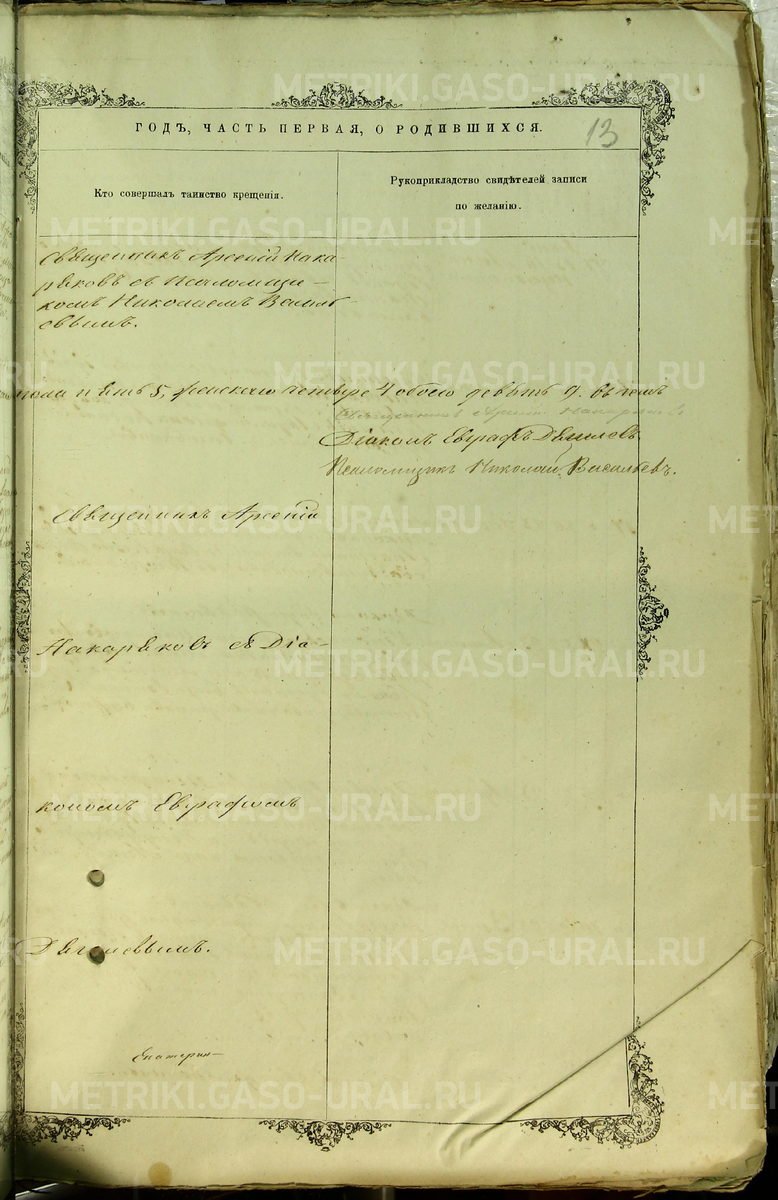 ГОДЪ, ЧАСТЬ ПЕРВАЯ, О РОДИВШИХСЯ.
13
Кто совершалъ таинство крещенія.
Рукоприкладство свидѣтелей записи
по желанію.
Священникъ Арсеній Нака-
ряковъ съ Псаломщи-
комъ Николаемъ Василь
евымъ.
пола пять 5, женскаго четыре 4 обоего девять 9. въ томъ
Священникъ Арсеній Накаряковъ
Діаконъ Евграфъ
Псаломщикъ Николай Васильевъ.
Священникъ Арсеній
Накаряковъ съ Діа-
кономъ Евграфомъ
Екатерин-
METRIKI.GASO-URAL.RU